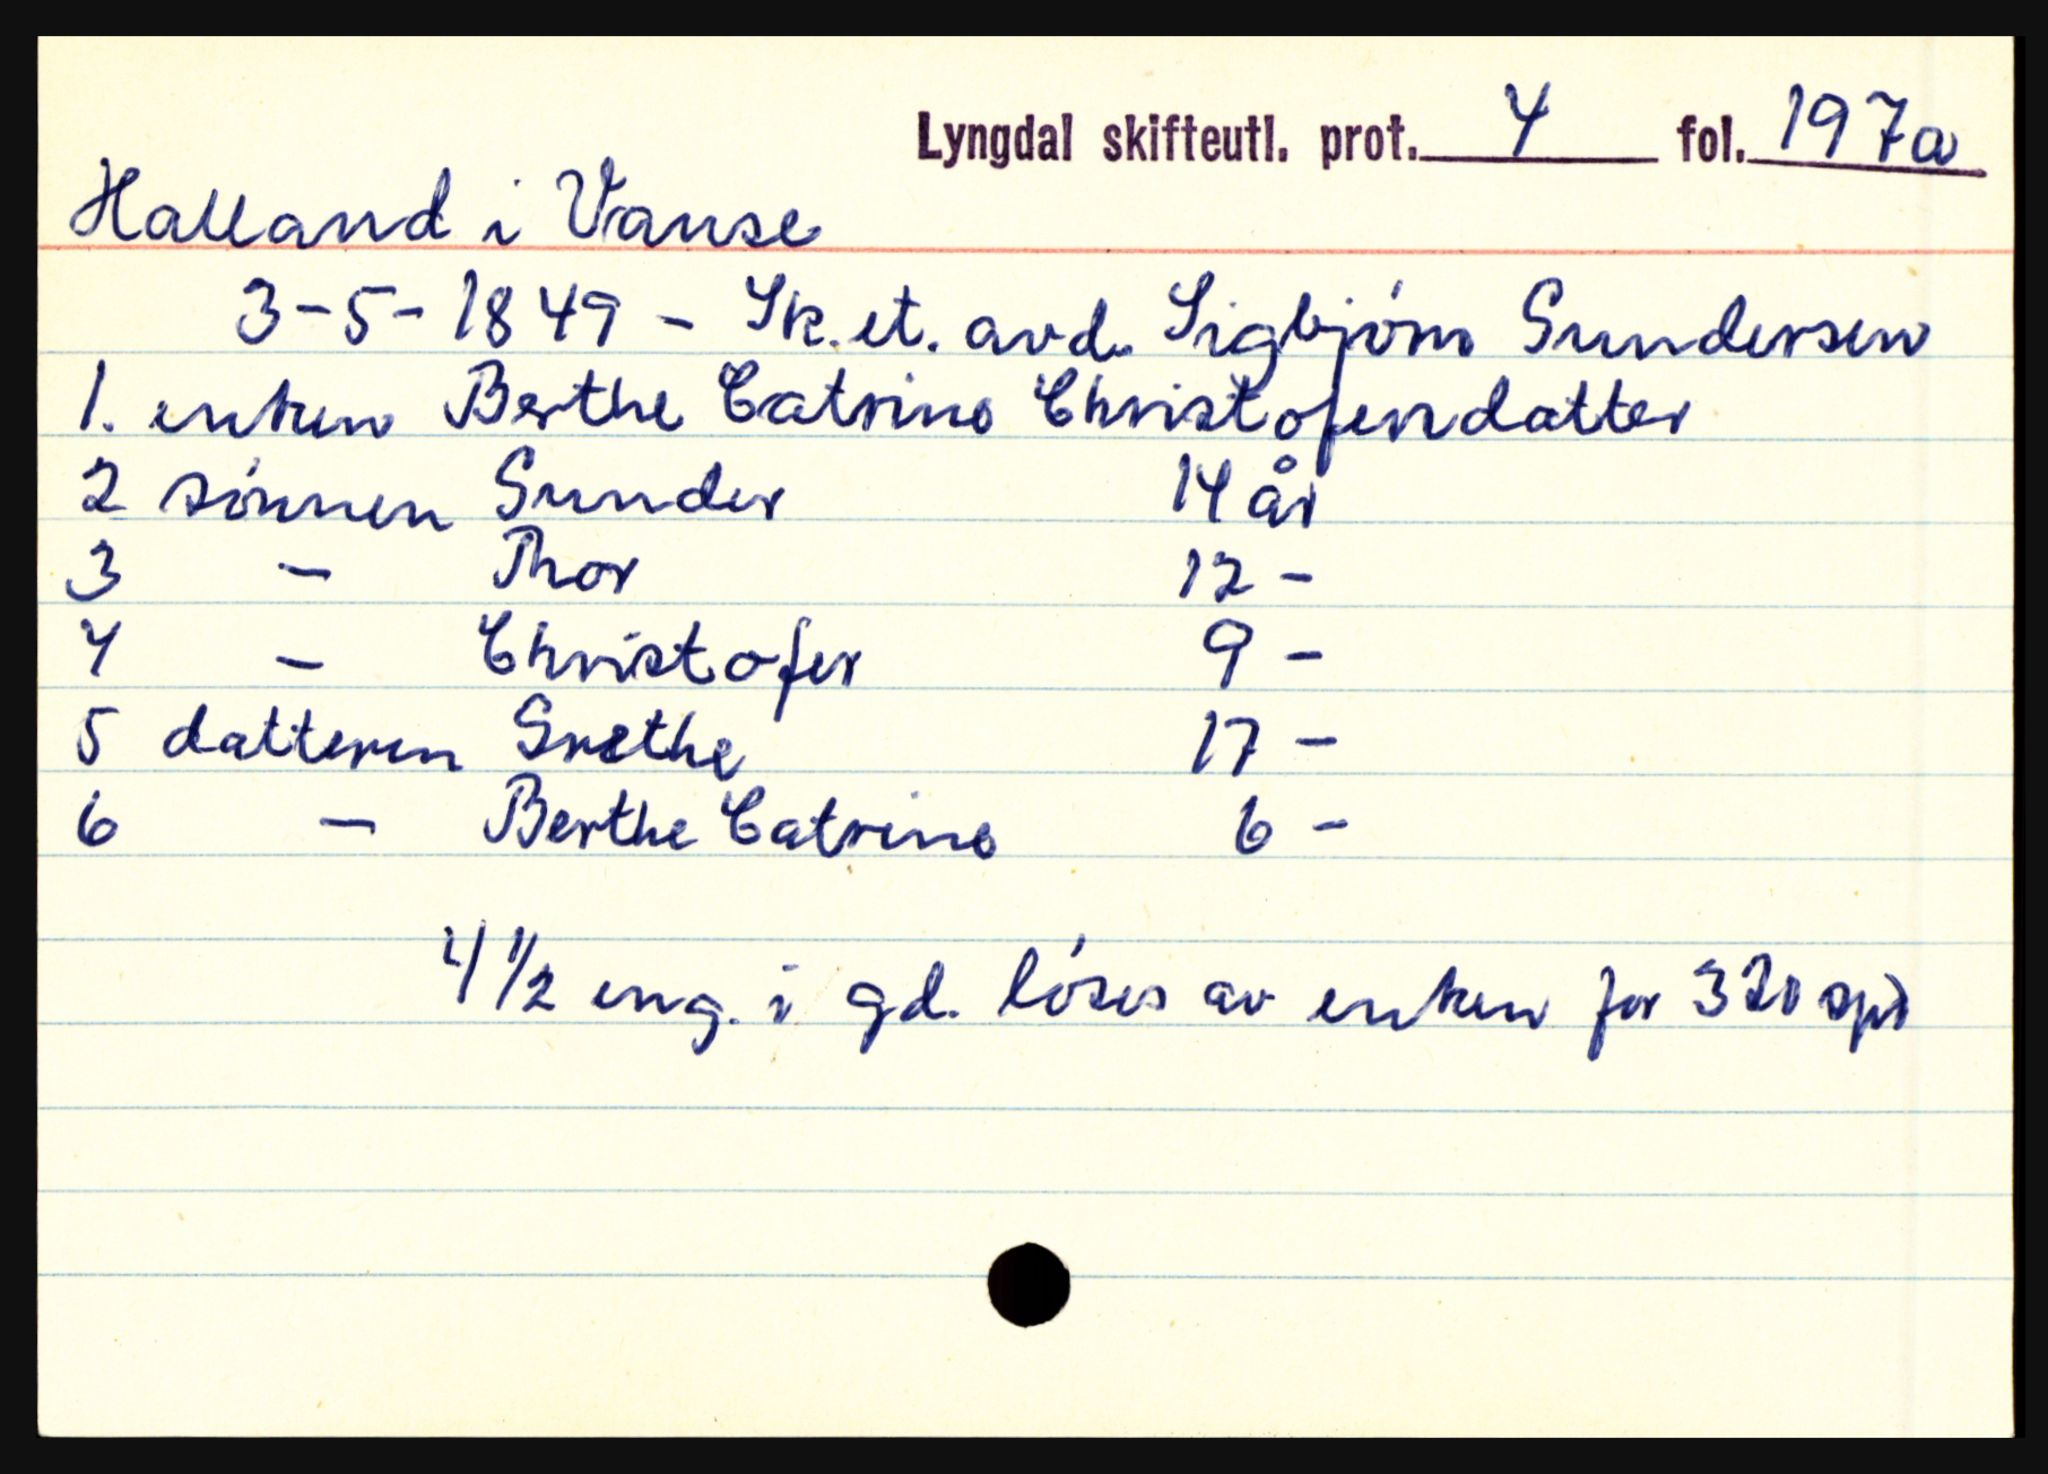 Lyngdal skifteutl. prot. 4 fol. 197a
Halland i Vanse
3-5-1849 - Sk. et. avd. Sigbjørn Gundersen
1. enken Berthe Catrine Christofersdatter
2 sønnen Gunder 14 år
3 - Thor 12 -
4 - Christofer 9 -
5 datteren Grethe 17 -
6 - Berthe Catrine 6 -
4 1/2 eng. i gd. løses av enken for 320 spd